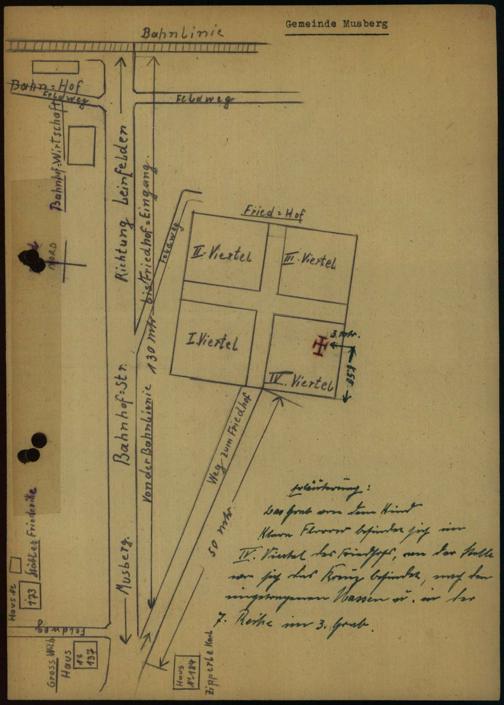 Gemeinde Musberg
Bahnlinie
Bahn=Hof
Feldweg
Feldweg
Bahnhof=Wirtschaft
Richtung Leinfelden
Von der Bahnlinie 130 mtr. bis Friedhof=Eingang.
Feldweg
Fried=Hof
II. Viertel
III. Viertel
I. Viertel
IV. Viertel
3. mtr.
NORD
Musberg. Bahnhof=Str.
Weg zum Friedhof
50 mtr.
Haus №
173
Städtler Friederike
Feldweg
Gross Wilh.
Haus
№
137
Haus
№ 184
Zipperle Karl
Erläuterung:
Das Grab von dem Kind
Klara befindet sich im
IV. Viertel des Friedhofs, an der Stelle
wo sich das Kreuz befindet, nach den
eingetragenen Massen u. in der
7. Reihe im 3. Grab.